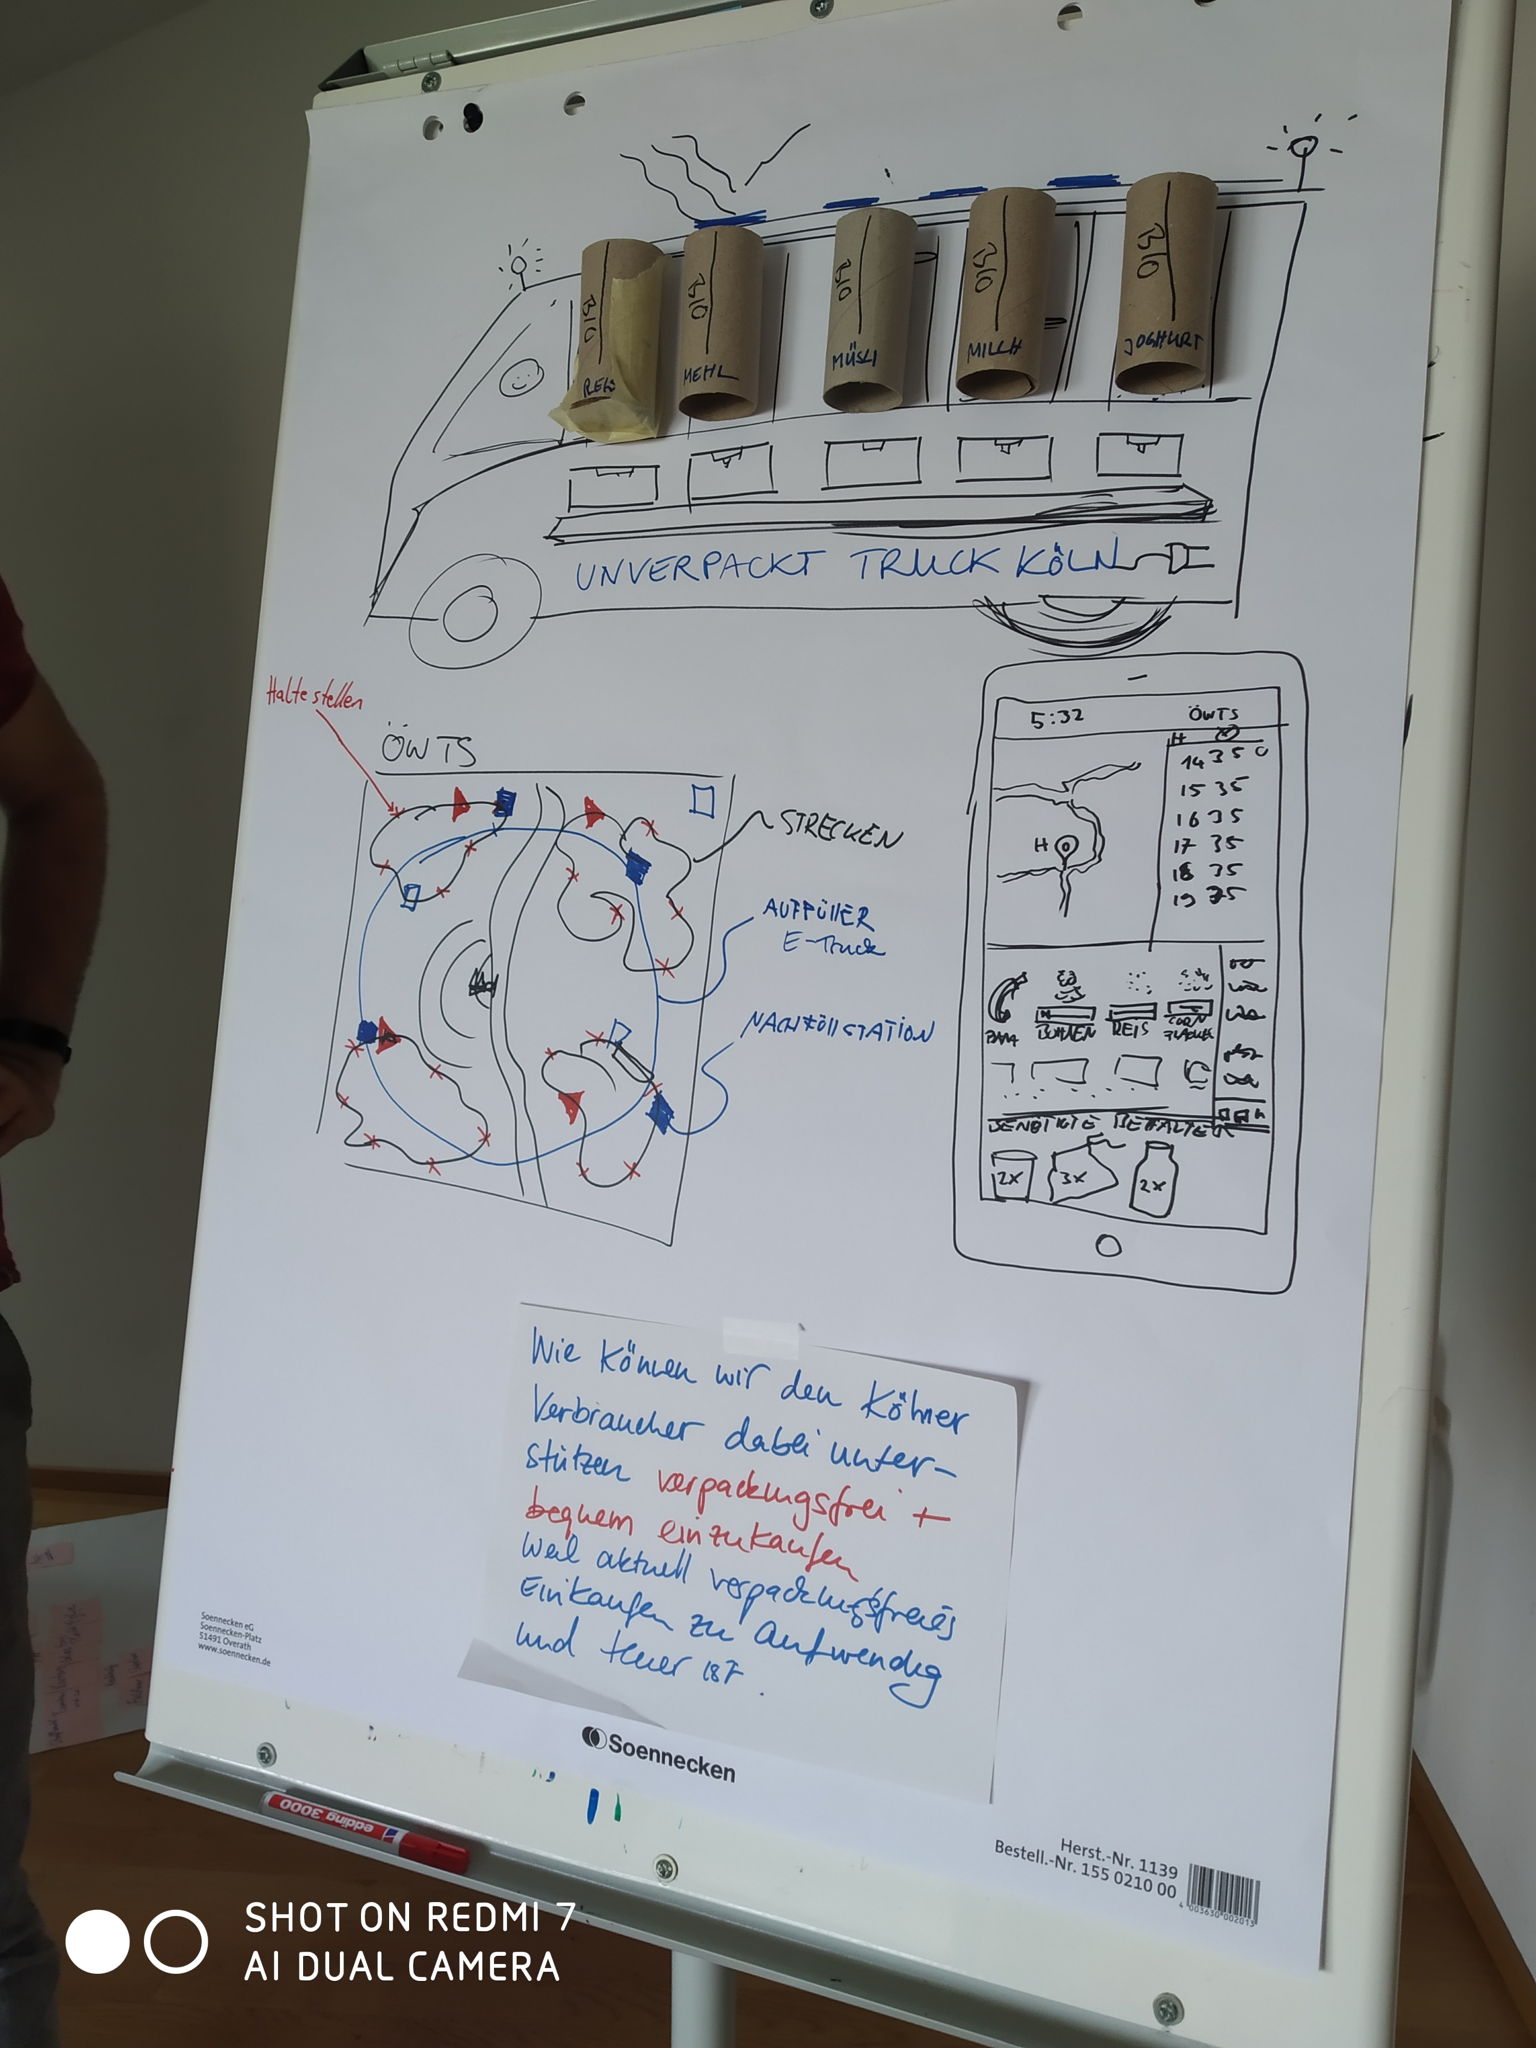 BIO
BIO
BIO
BIO
BIO
REIS
MEHL
MÜSLI
MILCH
JOGHURT
UNVERPACKT TRUCK KÖLN
Haltestellen
ÖWTS
STRECKEN
AUFFÜLLER
E-Truck
NACHFÜLLSTATION
5:32
ÖWTS
H
14 35
15 35
16 35
17 35
18 35
19 35
BOHNEN
REIS
CORN
FLAKES
BENÖTIGTE BEHÄLTER
2x
3x
2x
H
Wie können wir den Kölner
Verbraucher dabei unter-
stützen verpackungsfrei +
bequem einzukaufen
weil aktuell verpackungsfreies
Einkaufen zu Aufwendig
und teuer ist.
Soennecken eG
Soennecken-Platz
51491 Overath
www.soennecken.de
Soennecken
Herst.-Nr. 1139
Bestell.-Nr. 155 0210 00
4 003630 002013
edding 3000
SHOT ON REDMI 7
AI DUAL CAMERA